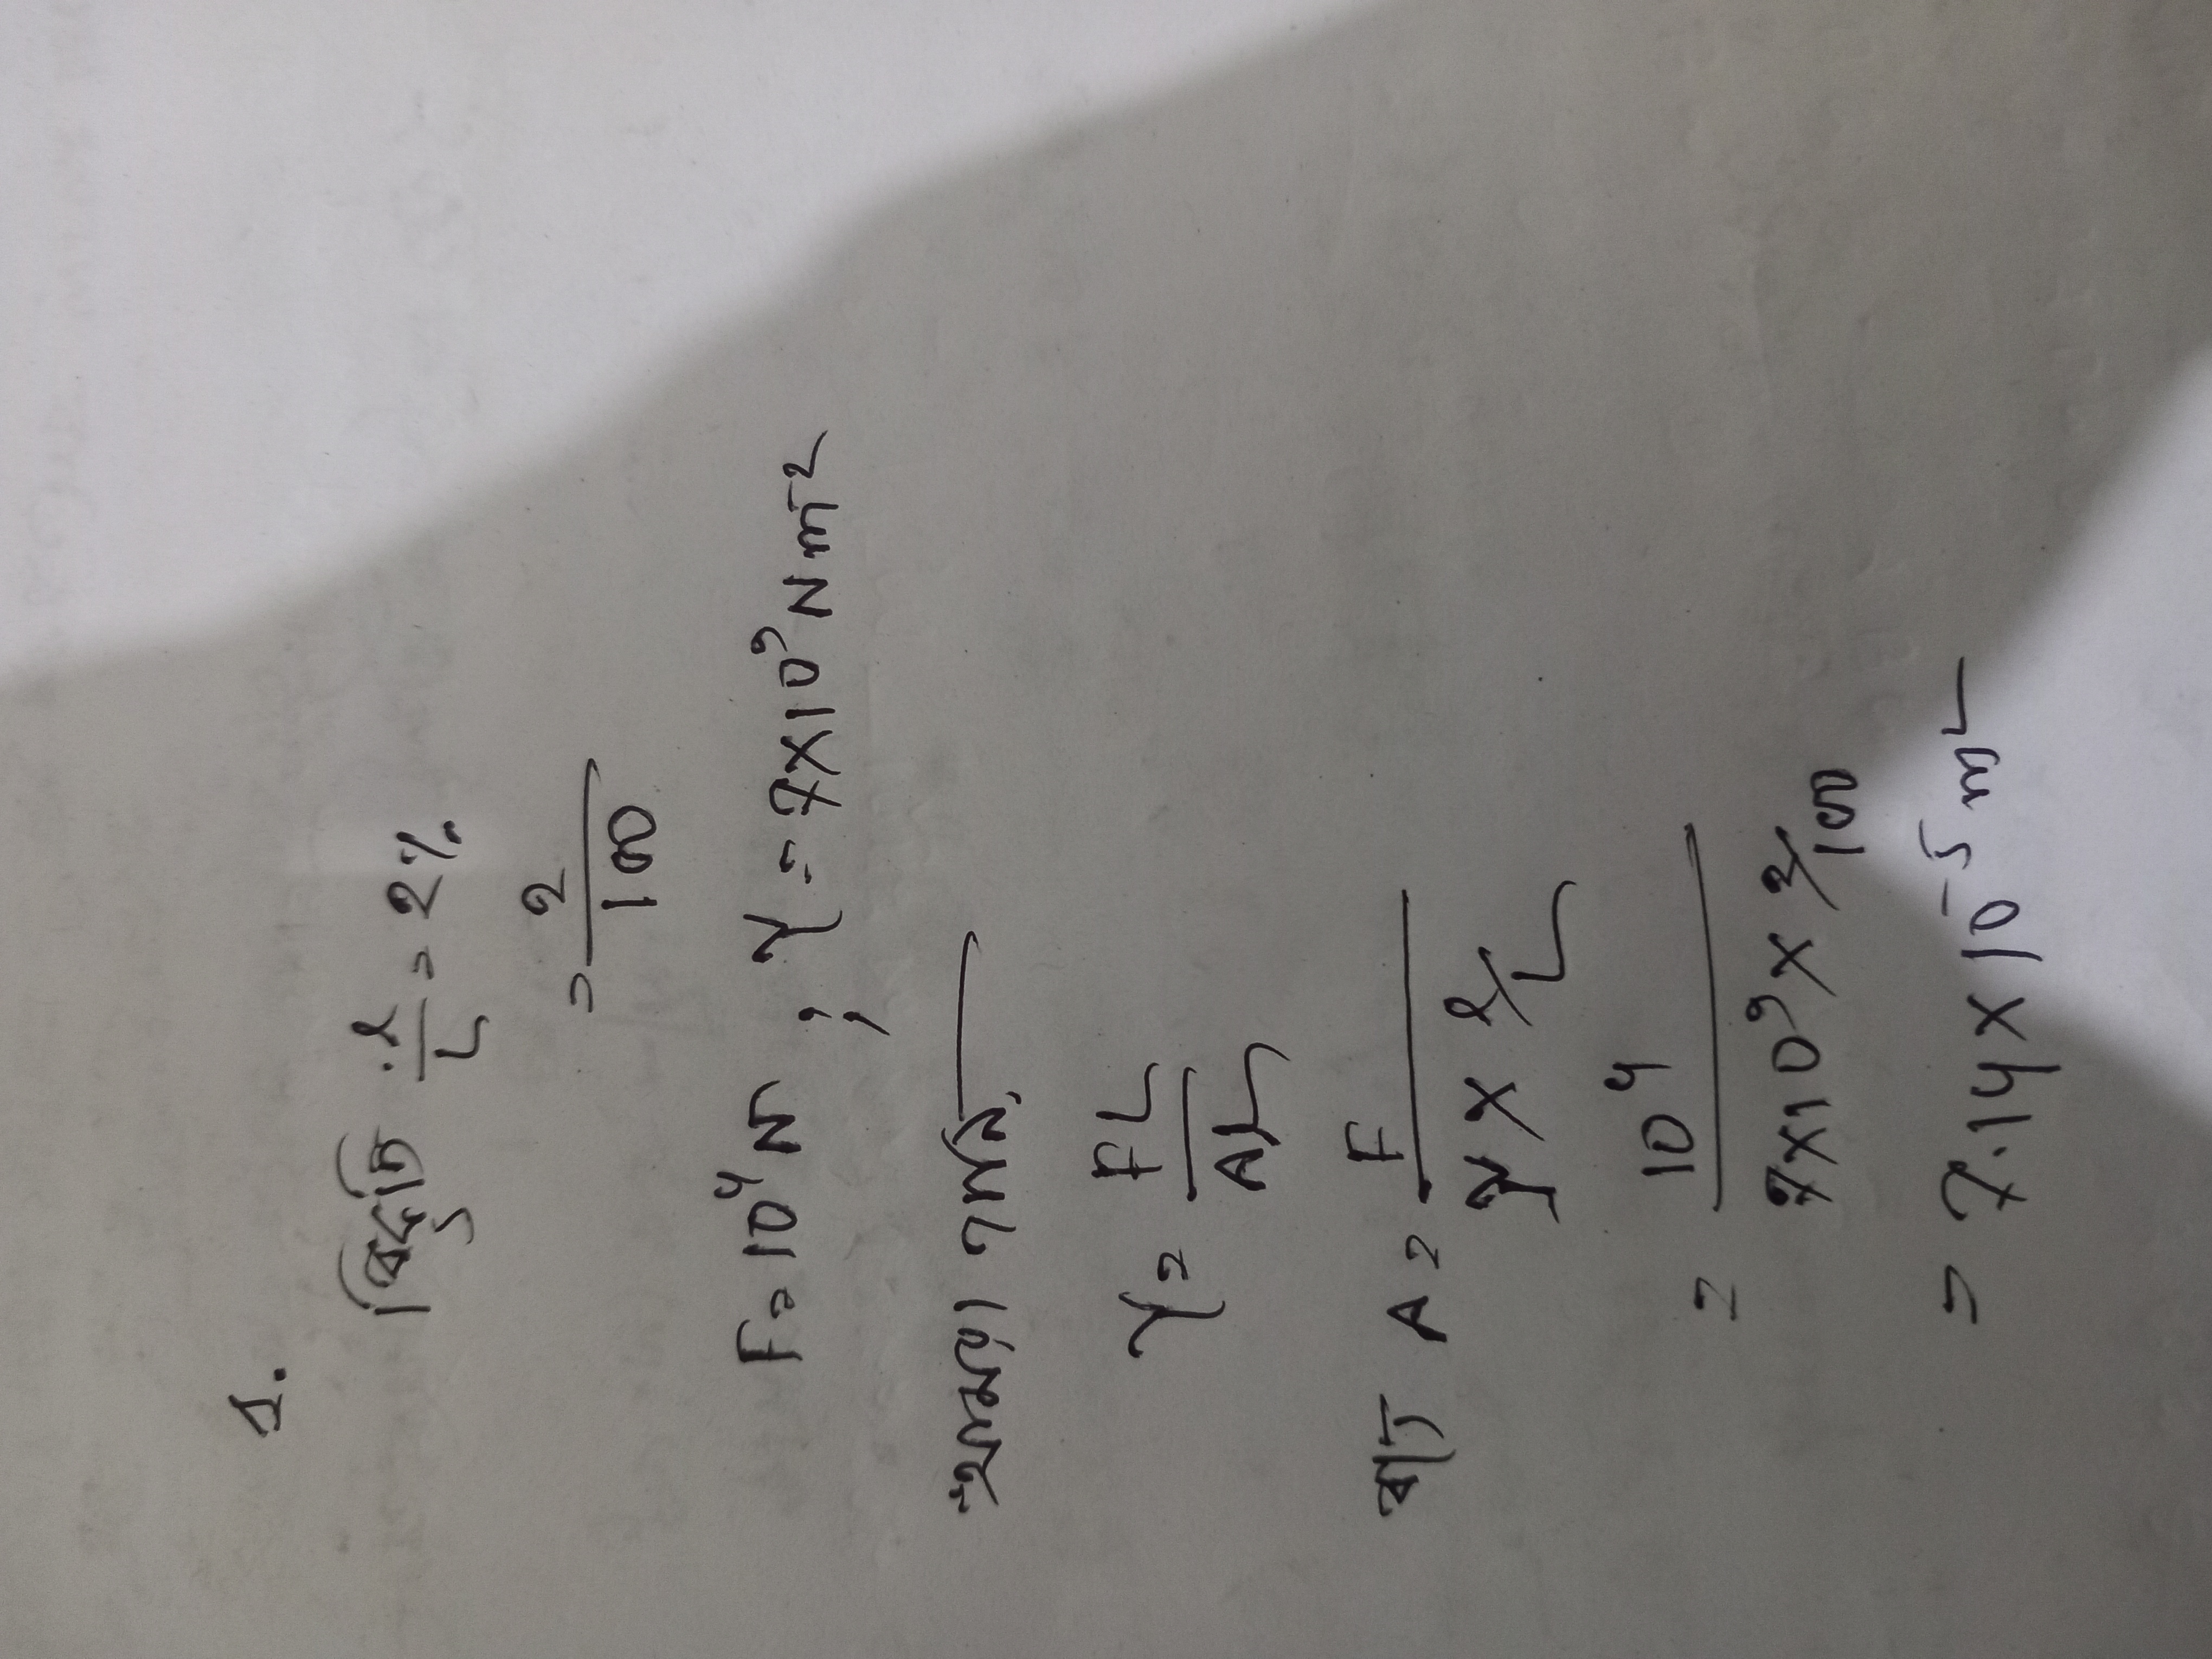 1.
বিকৃতি l/L = 2%
= 2/100
F = 10⁴ N ; Y = 7×10⁹ Nm⁻²
আমরা জানি,
Y = FL/AL
বা, A = F/(Y × l/L)
= 10⁴/(7×10⁹ × 2/100)
= 7.14 × 10⁻⁵ m²